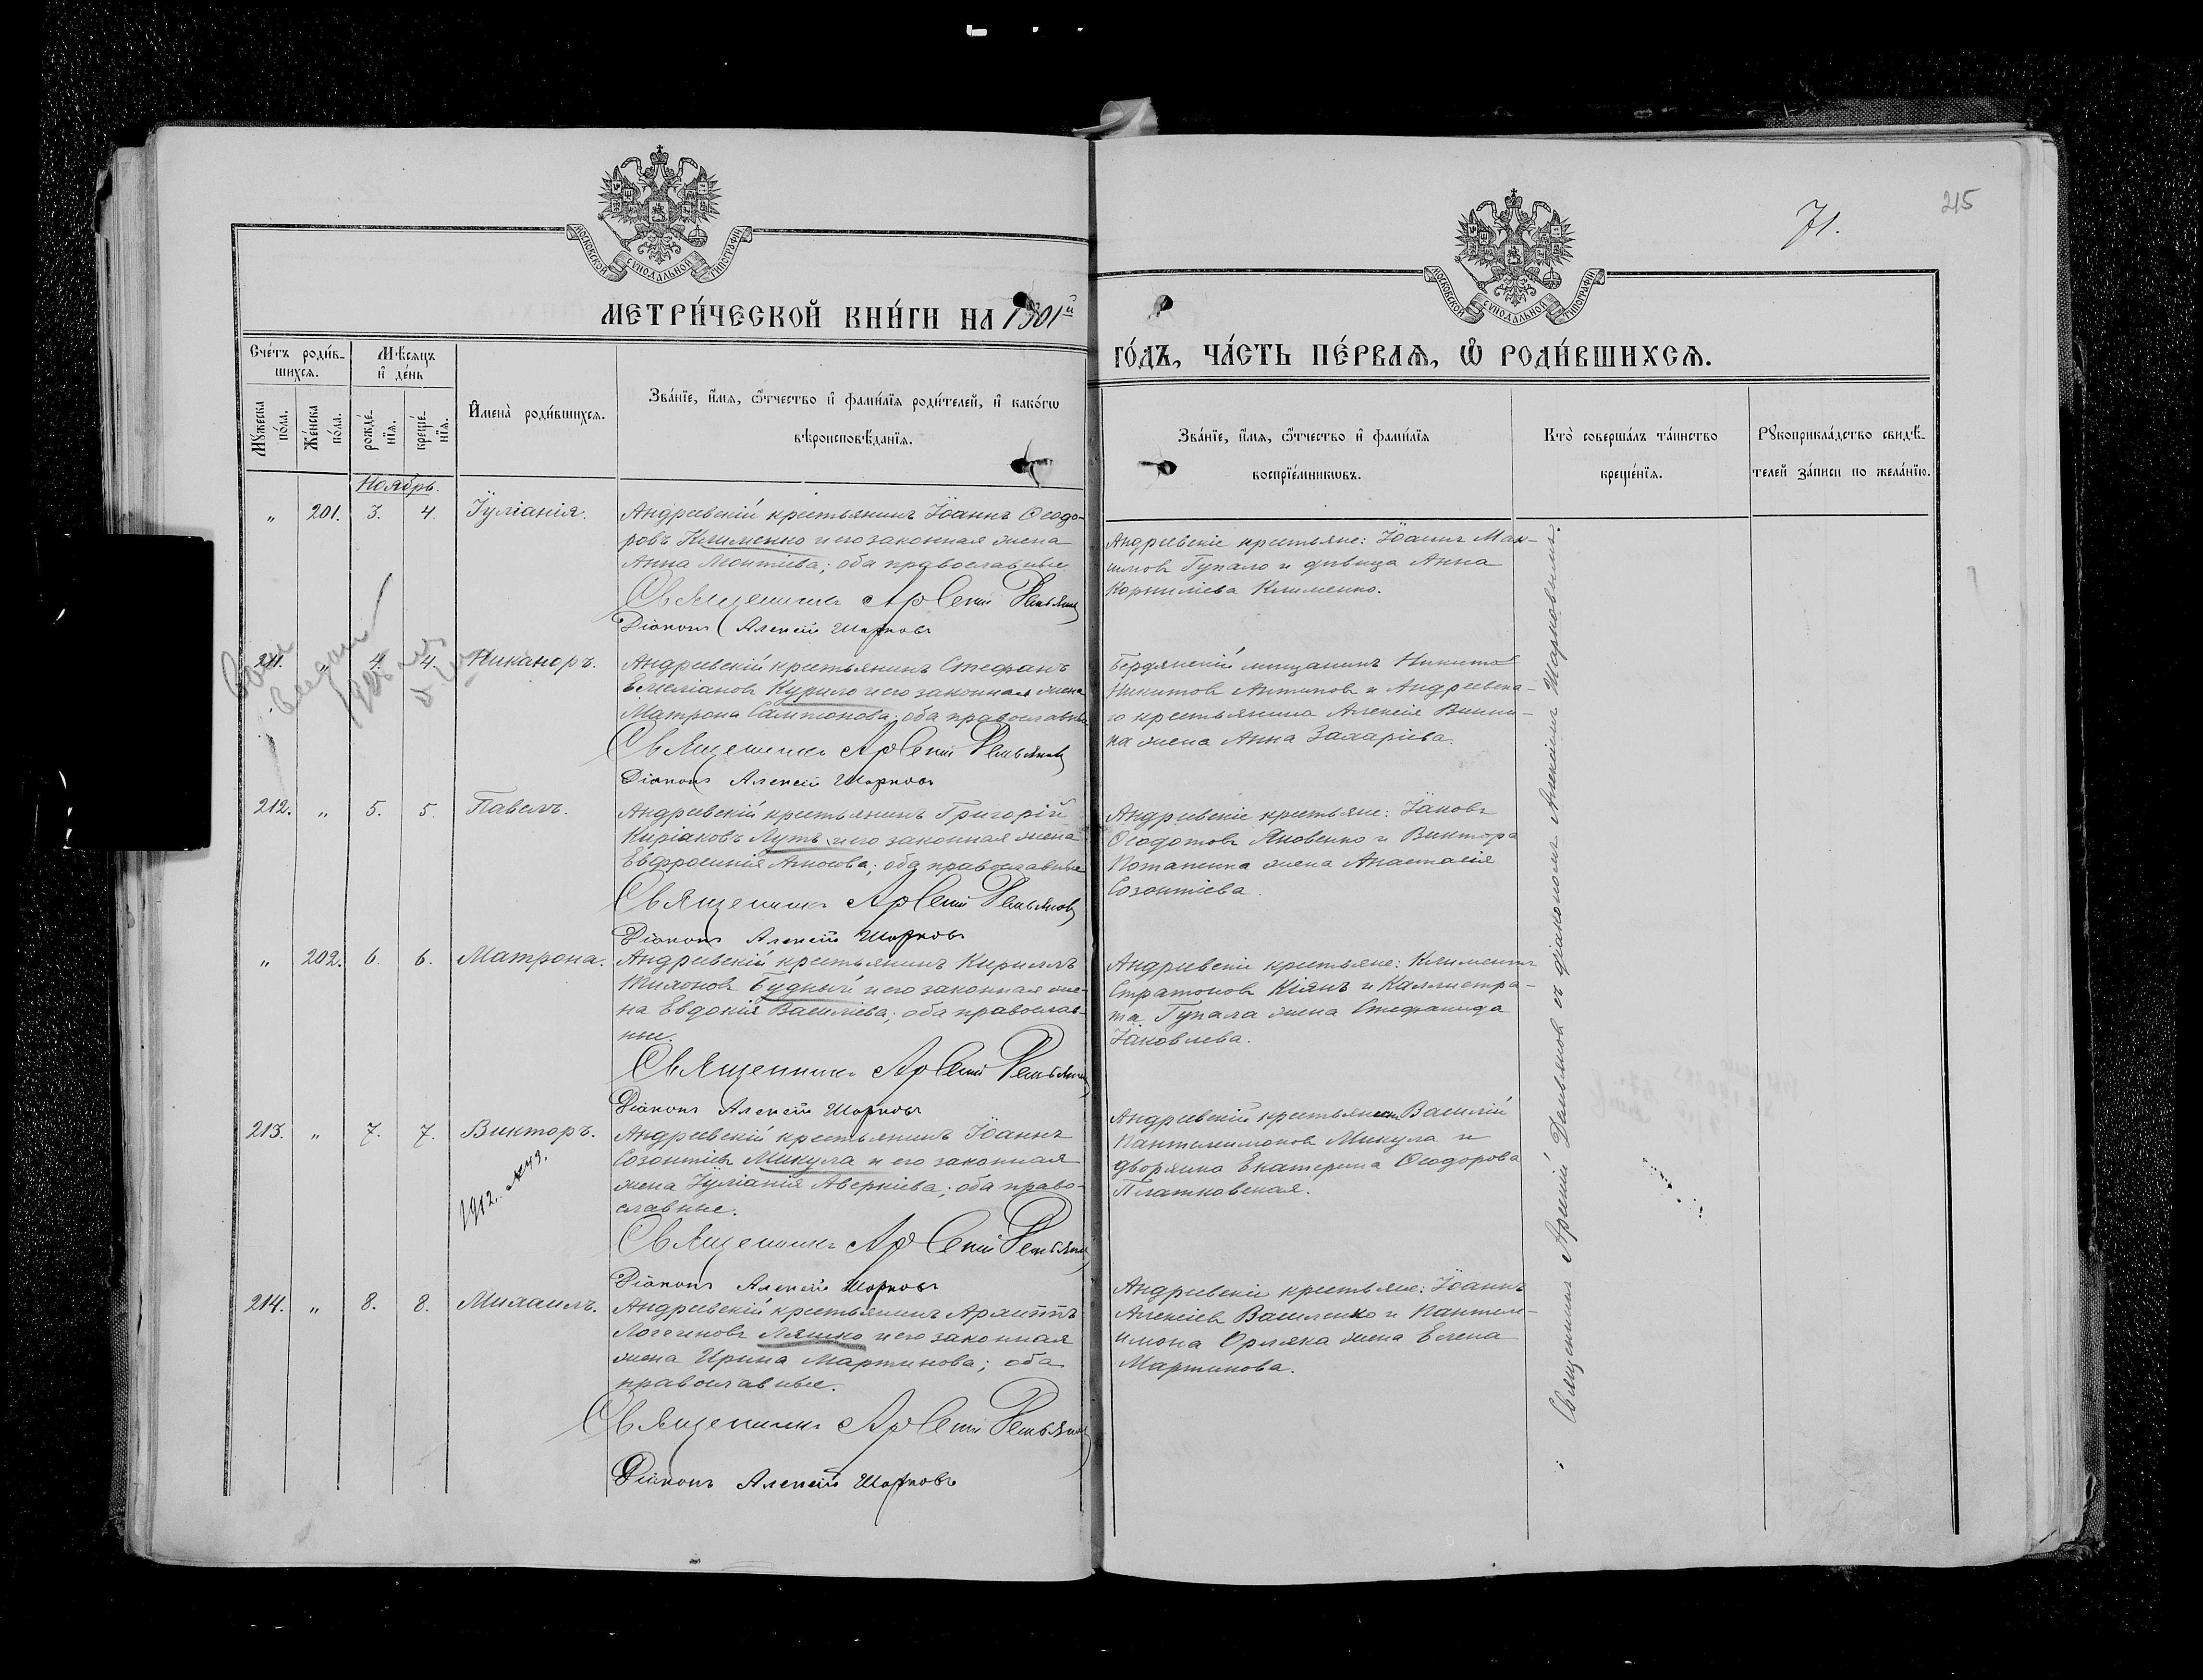 71.
215
МОСКОВСКОЙ СѴНОДАЛЬНОЙ ТИПОГРАФІИ
МОСКОВСКОЙ СѴНОДАЛЬНОЙ ТИПОГРАФІИ
МЕТРИ́ЧЕСКОЙ КНИ́ГИ НА 1901й
ГО́ДЪ, ЧА́СТЬ ПЕ́РВАѦ, Ѽ РОДИ́ВШИХСѦ.
Сче́тъ роди́в-
шихсѧ.
Мꙋжеска по́ла.
Же́нска по́ла.
Мѣ́сѧцъ
и҆ де́нь
рожде́-
нїѧ.
креще́-
нїѧ.
И҆мена̀ роди́вшихсѧ.
Зва́нїе, и҆́мѧ, ѻ҆́тчество и҆ фами́лїѧ роди́телей, и҆ како́гѡ
вѣроисповѣ́данїѧ.
Зва́нїе, и҆́мѧ, ѻ҆́тчество и҆ фами́лїѧ
воспрїе́мникѡвъ.
Кто̀ соверша́лъ та́инство
креще́нїѧ.
Рꙋкоприкла́дство свидѣ́-
телей за́писи по жела́нїю.
Ноябрь.
„ 201. 3. 4. Іуліанія.
Андреевскій крестьянинъ Іоаннъ Ѳеодо-
ровъ Клименко и его законная жена
Анна Леонтіева; оба православные
Священникъ Арсеній Демьяновъ
Діаконъ Алексій Шарковъ
Андреевскіе крестьяне: Іоаннъ Мак-
имовъ Гупало и дѣвица Анна
Корниліева Клименко.
211. „ 4. 4. Никаноръ.
Андреевскій крестьянинъ Стефанъ
Емеліановъ Курило и его законная жена
Матрона Сампсонова; оба православные
Священникъ Арсеній Демьяновъ
Діаконъ Алексій Шарковъ
Бердянскій мѣщанинъ Никита
Никитовъ Антиповъ и Андреевска-
го крестьянина Алексія Винни-
ка жена Анна Захаріева.
212. „ 5. 5. Павелъ.
Андреевскій крестьянинъ Григорій
Киріаковъ Луть и его законная жена
Евфросинія Амосова; оба православные
Священникъ Арсеній Демьяновъ
Діаконъ Алексій Шарковъ
Андреевскіе крестьяне: Іаковъ
Ѳеодотовъ Яковенко и Виктора
Потапенка жена Анастасія
Созонтіева.
„ 202. 6. 6. Матрона.
Андреевскій крестьянинъ Кириллъ
Тихоновъ Будный и его законная же-
на Евдокія Василіева; оба православ-
ные.
Священникъ Арсеній Демьяновъ
Діаконъ Алексій Шарковъ
Андреевскіе крестьяне: Климентъ
Стратоновъ Кіянъ и Каллистра-
та Гупала жена Стефанида
Іаковлева.
213. „ 7. 7. Викторъ.
1912.
Андреевскій крестьянинъ Іоаннъ
Созонтіевъ Микула и его законная
жена Іуліанія Аверкіева; оба право-
славные.
Священникъ Арсеній Демьяновъ
Діаконъ Алексій Шарковъ
Андреевскій крестьянинъ Василій
Пантелеимоновъ Микула и
дворянка Екатерина Ѳеодорова
Платковская.
214. „ 8. 8. Михаилъ.
Андреевскій крестьянинъ Архиппъ
Логгиновъ Ляшко и его законная
жена Ирина Мартинова; оба
православные.
Священникъ Арсеній Демьяновъ
Діаконъ Алексій Шарковъ
Андреевскіе крестьяне: Іоаннъ
Алексіевъ Василенко и Пантеле-
имона Орляка жена Елена
Мартинова.
Священникъ Арсеній Демьяновъ съ діакономъ Алексіемъ Шарковымъ.